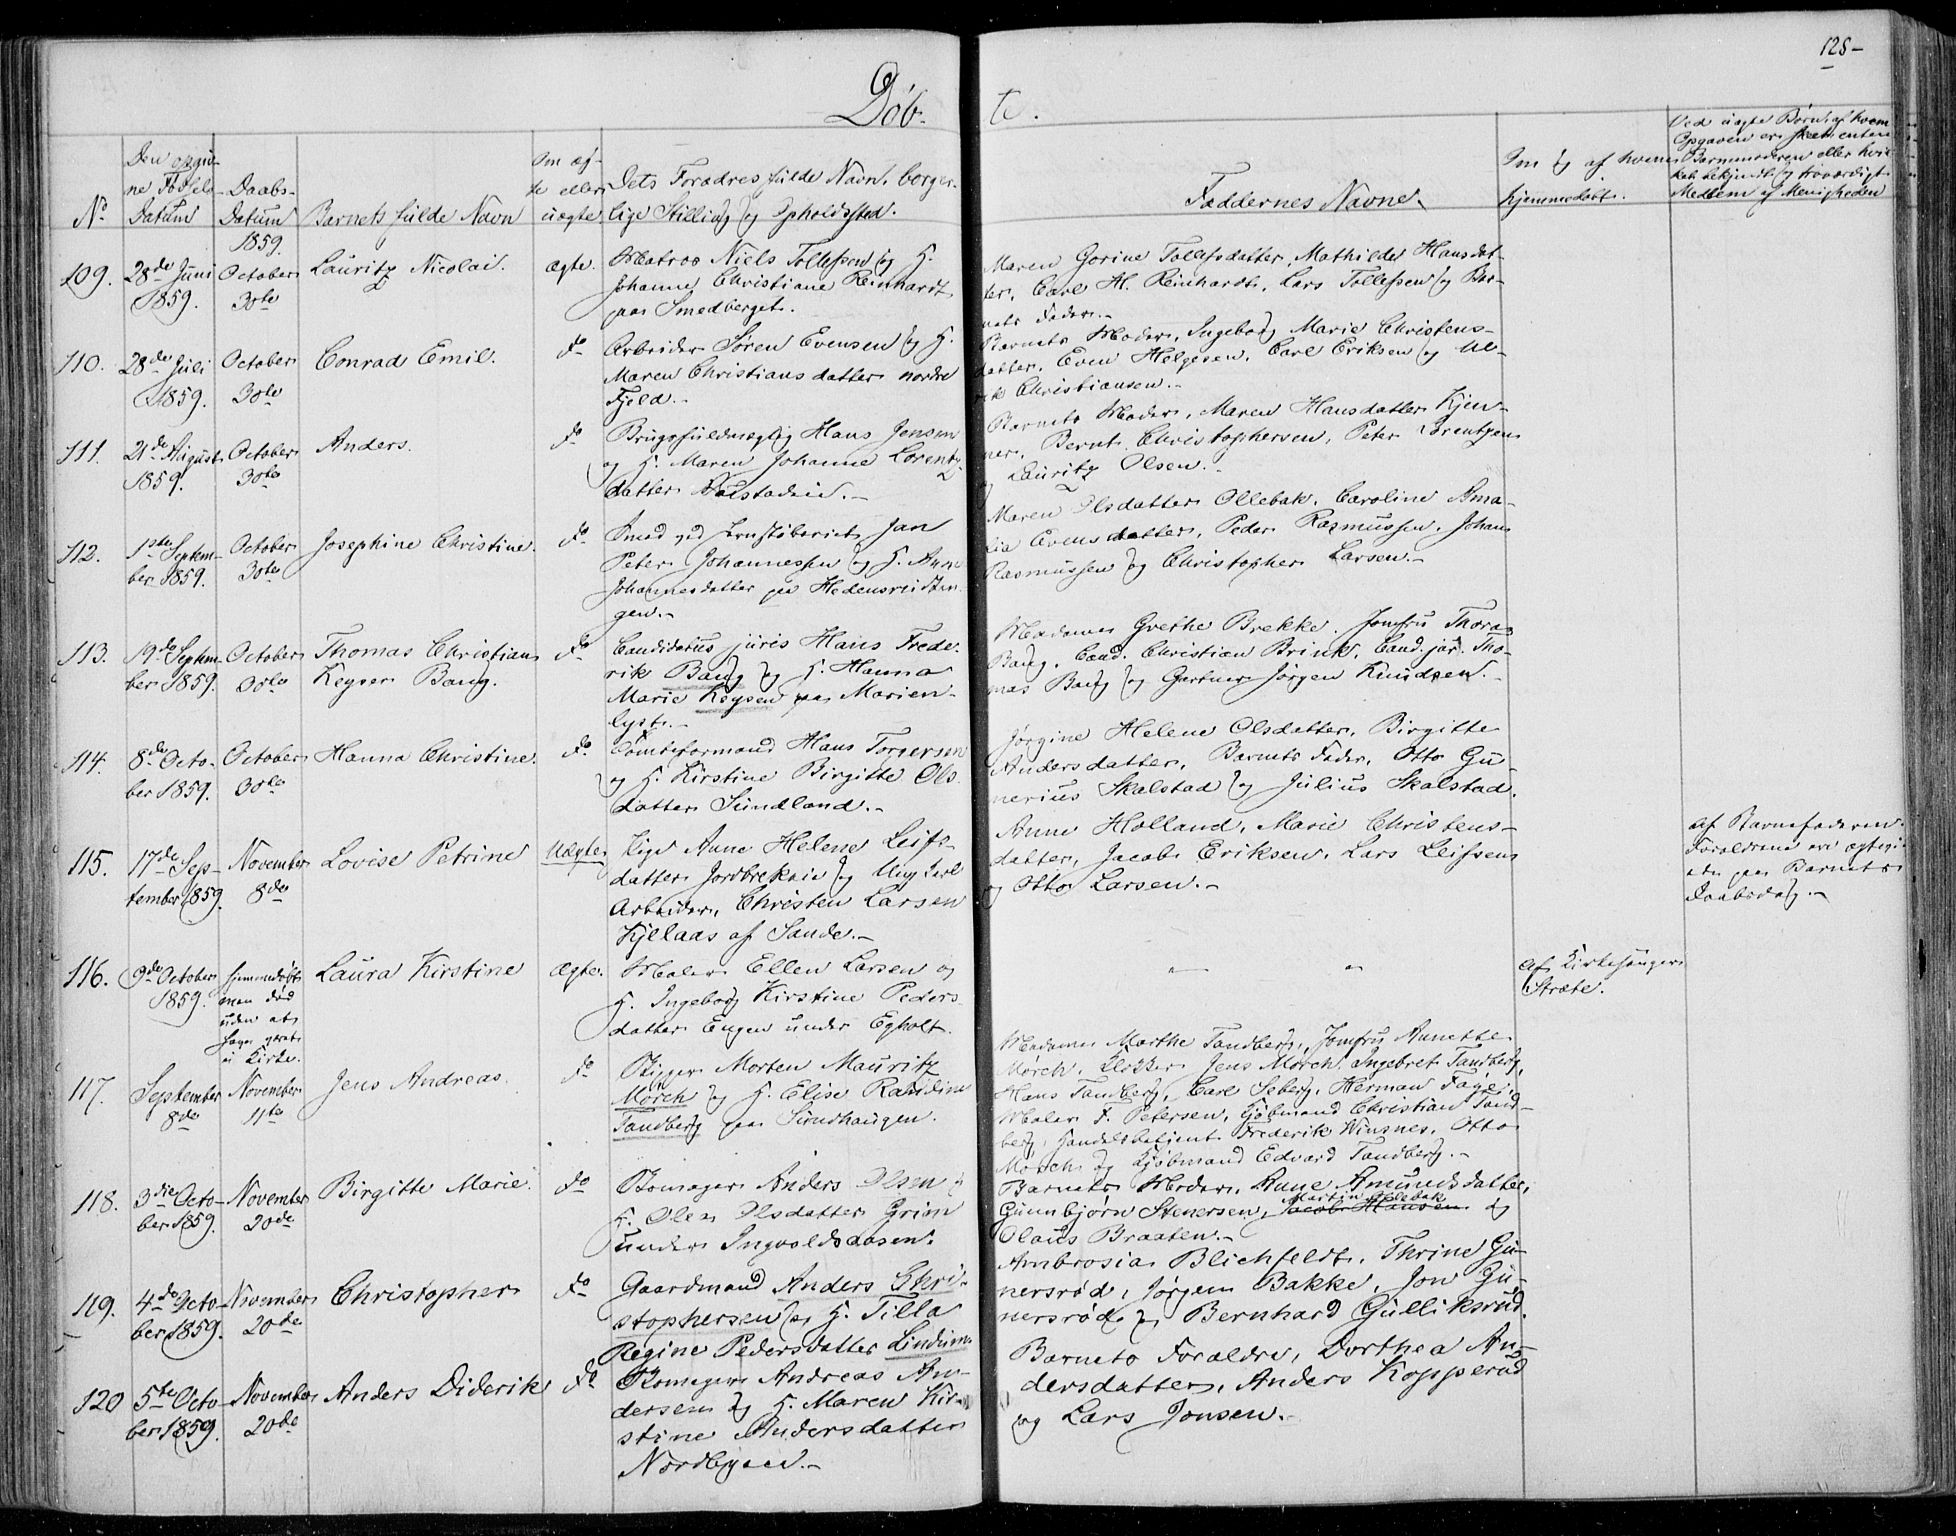 128-
Døb-
te.
No
Den opgiv-
ne Fødsels-
Datum
Daabs-
Datum
Barnets fulde Navn
Om æg-
te eller
uægte.
Dets Forældres fulde Navn, borger-
lige Stilling og Opholdssted.
Faddernes Navne.
Om og af hvem
hjemmedøbt.
Ved uægte Børn, af hvem
Opgaven er skeet, enten
Barnemoderen eller
bekjendt og troværdigt
Medlem af Menigheden
1859.
109.
28de Juni
1859.
October
30te
Lauritz Nicolai.
ægte.
Matros Niels Tollefsen og H.
Johanne Christiane Reinhardt
paa Smedberget.
Maren Gorine Tollefsdatter, Mathilde Hansdat-
ter, Carl H. Reinhardt, Lars Tollefsen og Bar-
nets Fader.-
110.
28de Juli
1859.
October
30te
Conrad Emil.
do
Arbeider Søren Evensen og H.
Maren Christiansdatter nordre
Fjeld.-
Barnets Moder, Ingeborg Marie Christens-
datter, Even Helgesen, Carl Eriksen og Ul-
rik Christiansen.-
111.
21de August
1859.
October
30te
Anders.
do
Brugsfuldmægtig Hans Jensen
og H. Maren Johanne Lorentz-
datter
Barnets Moder, Maren Hansdatter Kjen-
ner, Bernt Christophersen, Peter Lorentzen
og Lauritz Olsen.-
112.
1ste Septem-
ber 1859.
October
30te
Josephine Christine.
do
Smed ved Jernstøberiet Jan
Peter Johannessen og H. Anne
Johannesdatter paa
gen.-
Maren Olsdatter Ollebak, Caroline Ama-
lia Evensdatter, Peder Rasmussen, Johan
Rasmussen og Christopher Larsen.-
113.
19de Septem-
ber 1859.
October
30te
Thomas Christian
Keyser Bang.
do
Candidatus juris Hans Frede-
rik Bang og H. Hanna
Marie Keyser paa Marien-
lyst.-
Madame Grethe Brekke, Jomfru Thora
Bang, Cand. Christian Brink, Cand. jur. Tho-
mas Bang og Gartner Jørgen Knudsen.-
114.
8de Octo-
ber 1859.
October
30te
Hanna Christine.
do
Tomteformand Hans Torgersen
og H. Kirstine Birgitte Ols-
datter Sundland.-
Jørgine Helene Olsdatter, Birgitte
Andersdatter, Barnets Fader, Otto Gu-
nerius Skalstad og Julius Skalstad.
115.
17de Sep-
tember 1859.
November
8de
Lovise Petrine
Uægte
Pige Anne Helene Leifs-
datter Jordbrekaie og Ungkarl
Arbeider, Christen Larsen
Kjelaas af Sande.-
Anne Holland, Marie Christens-
datter, Jacob Eriksen, Lars Leifsen
og Otto Larsen.-
af Barnefaderen.
Forældrene ere ægtevi-
ede paa Barnets
Daabsdag.-
116.
9de October
1859.
hjemmedøbt
men død
uden at
have været
i Kirke.
Laura Kirstine
ægte.
Maler Ellen Larsen og
H. Ingeborg Kirstine Peders-
datter Engen under Egholt.
"
"
Af Kirkesanger
Stræte.
117.
September
8de
November
11te
Jens Andreas.
do
Rigger Morten Mauritz
Mørch og H. Elise Randine
Tandberg paa Strudhaugen.
Madame Marthe Tandberg, Jomfru Annette
Mørch, Klokker Jens Mørch, Ingebret Tandberg,
Hans Tandberg, Carl Seberg, Herman Faye,
Maler F. Petersen, Kjøbmand Christian Tand-
berg, Handelsbetjent Frederik Winsnes, Otto
Mørch og Kjøbmand Edvard Tandberg.-
118.
3die Octo-
ber 1859.
November
20de
Birgitte Marie.
do
Skomager Anders Olsen og
H. Olea Olsdatter Grim
under Ingvoldsdasen.
Barnets Moder, Anne Amundsdatter,
Gunnbjørn Stenersen, Jacob Hansen og
Martin Ollebak
Olaus Braaten.-
119.
4de Octo-
ber 1859.
November
20de
Christopher
do
Gaardmand Anders Chri-
stophersen og H. Tilla
Regine Pedersdatter Lindum
Ambrosia Blichfeldt, Thrine Gu-
nersrød, Jørgen Bakke, Jon Gu-
nersrød og Bernhard Gulliksrud.
120
5te Octo-
ber 1859.
November
20de
Anders Diderik
do
Skomager Andreas An-
dersen og H. Maren Kir-
stine Andersdatter
Nordbyen.-
Barnets Forældre, Dorthea An-
dersdatter, Anders Kopperud
og Lars Jonsen.-